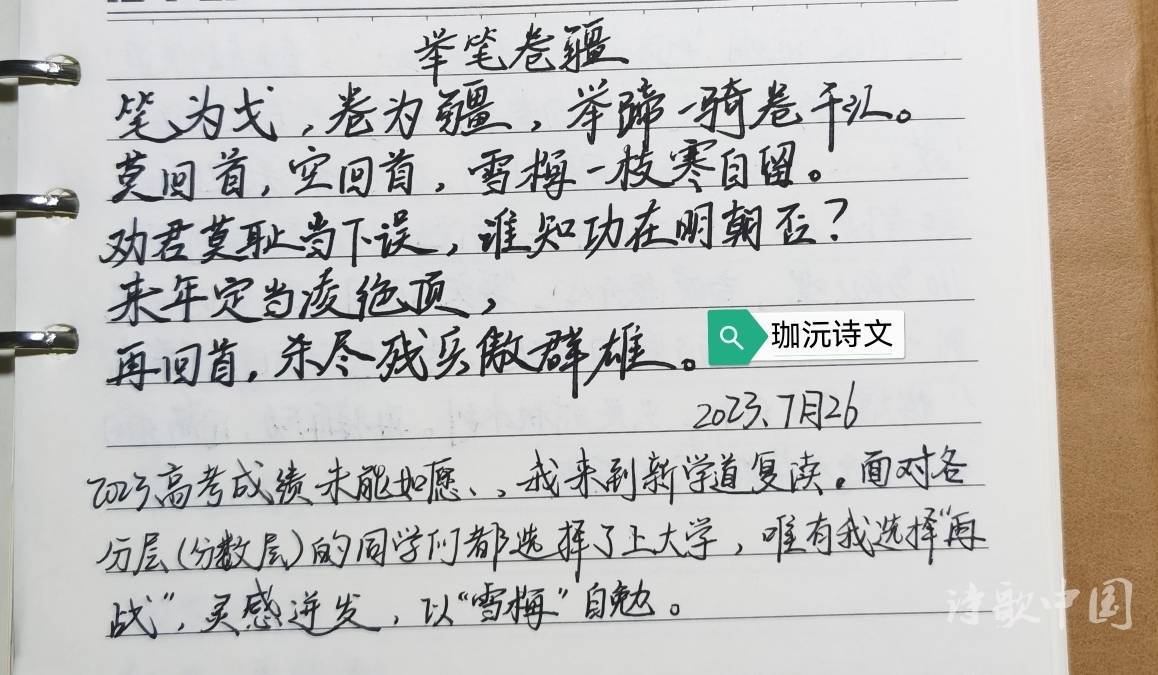 举笔卷疆
笔为戈，卷为疆，举蹄一骑卷千江。
莫回首，空回首，雪梅一枝寒自留。
劝君莫耻当下误，谁知功在明朝否？
来年定当凌绝顶，
再回首，杀尽残兵傲群雄。
珈沅诗文
2023、7月26
2023高考成绩未能如愿、，我来到新学道复读。面对各
分层（分数层）的同学们都选择了上大学，唯有我选择“再
战”，灵感迸发，以“雪梅”自勉。
诗歌中国